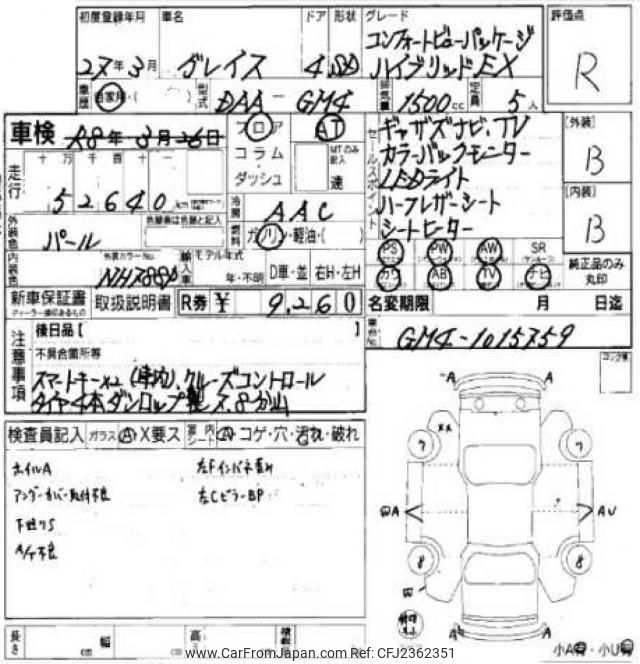 初度登録年月 車名 ドア 形状 グレード 評価点
27年3月 グレイス 4 コンフォートビューパッケージ
ハイブリッドEX R
車歴 自家用・( ) 型式 DAA-GM4 排気量 1500cc 定員 5人
車検 R8年3月26日 フロア AT セールスポイント ギャザズナビ、TV [外装]
コラム MTのみ記入 カラーバックモニター B
走行 十万千百十 ダッシュ 速 LEDライト
52640km 冷房 AAC ハーフレザーシート [内装]
外装色 パール 燃料 ガソリン・軽油・( ) シートヒーター B
内装色 外装カラーNo. NH788P 輸入車 モデル年式 PS PW AW SR
年・不明 D車・並 右H・左H カワ AB TV ナビ 純正品のみ丸印
新車保証書 取扱説明書 R券 ¥ 9,260 名変期限 月 日迄
ディーラー捺印あるもの
後日品[ ] 車台No. GM4-1015759
注意事項 不具合箇所等 コング値
スマートキーx2(1本内)、クルーズコントロール
タイヤ4本ダンロップ製 8分山
検査員記入 ガラス A X要ス 室内シート A コゲ・穴・汚れ・破れ
ホイルA 左Fインパネ
アンダーカバー取付不良 左CピラーBP
下廻りS
A A
xx
7 7
A AU
8 8
A A
長さ 幅 高さ 積載
小A・小U
www.CarFromJapan.com Ref: CFJ2362351